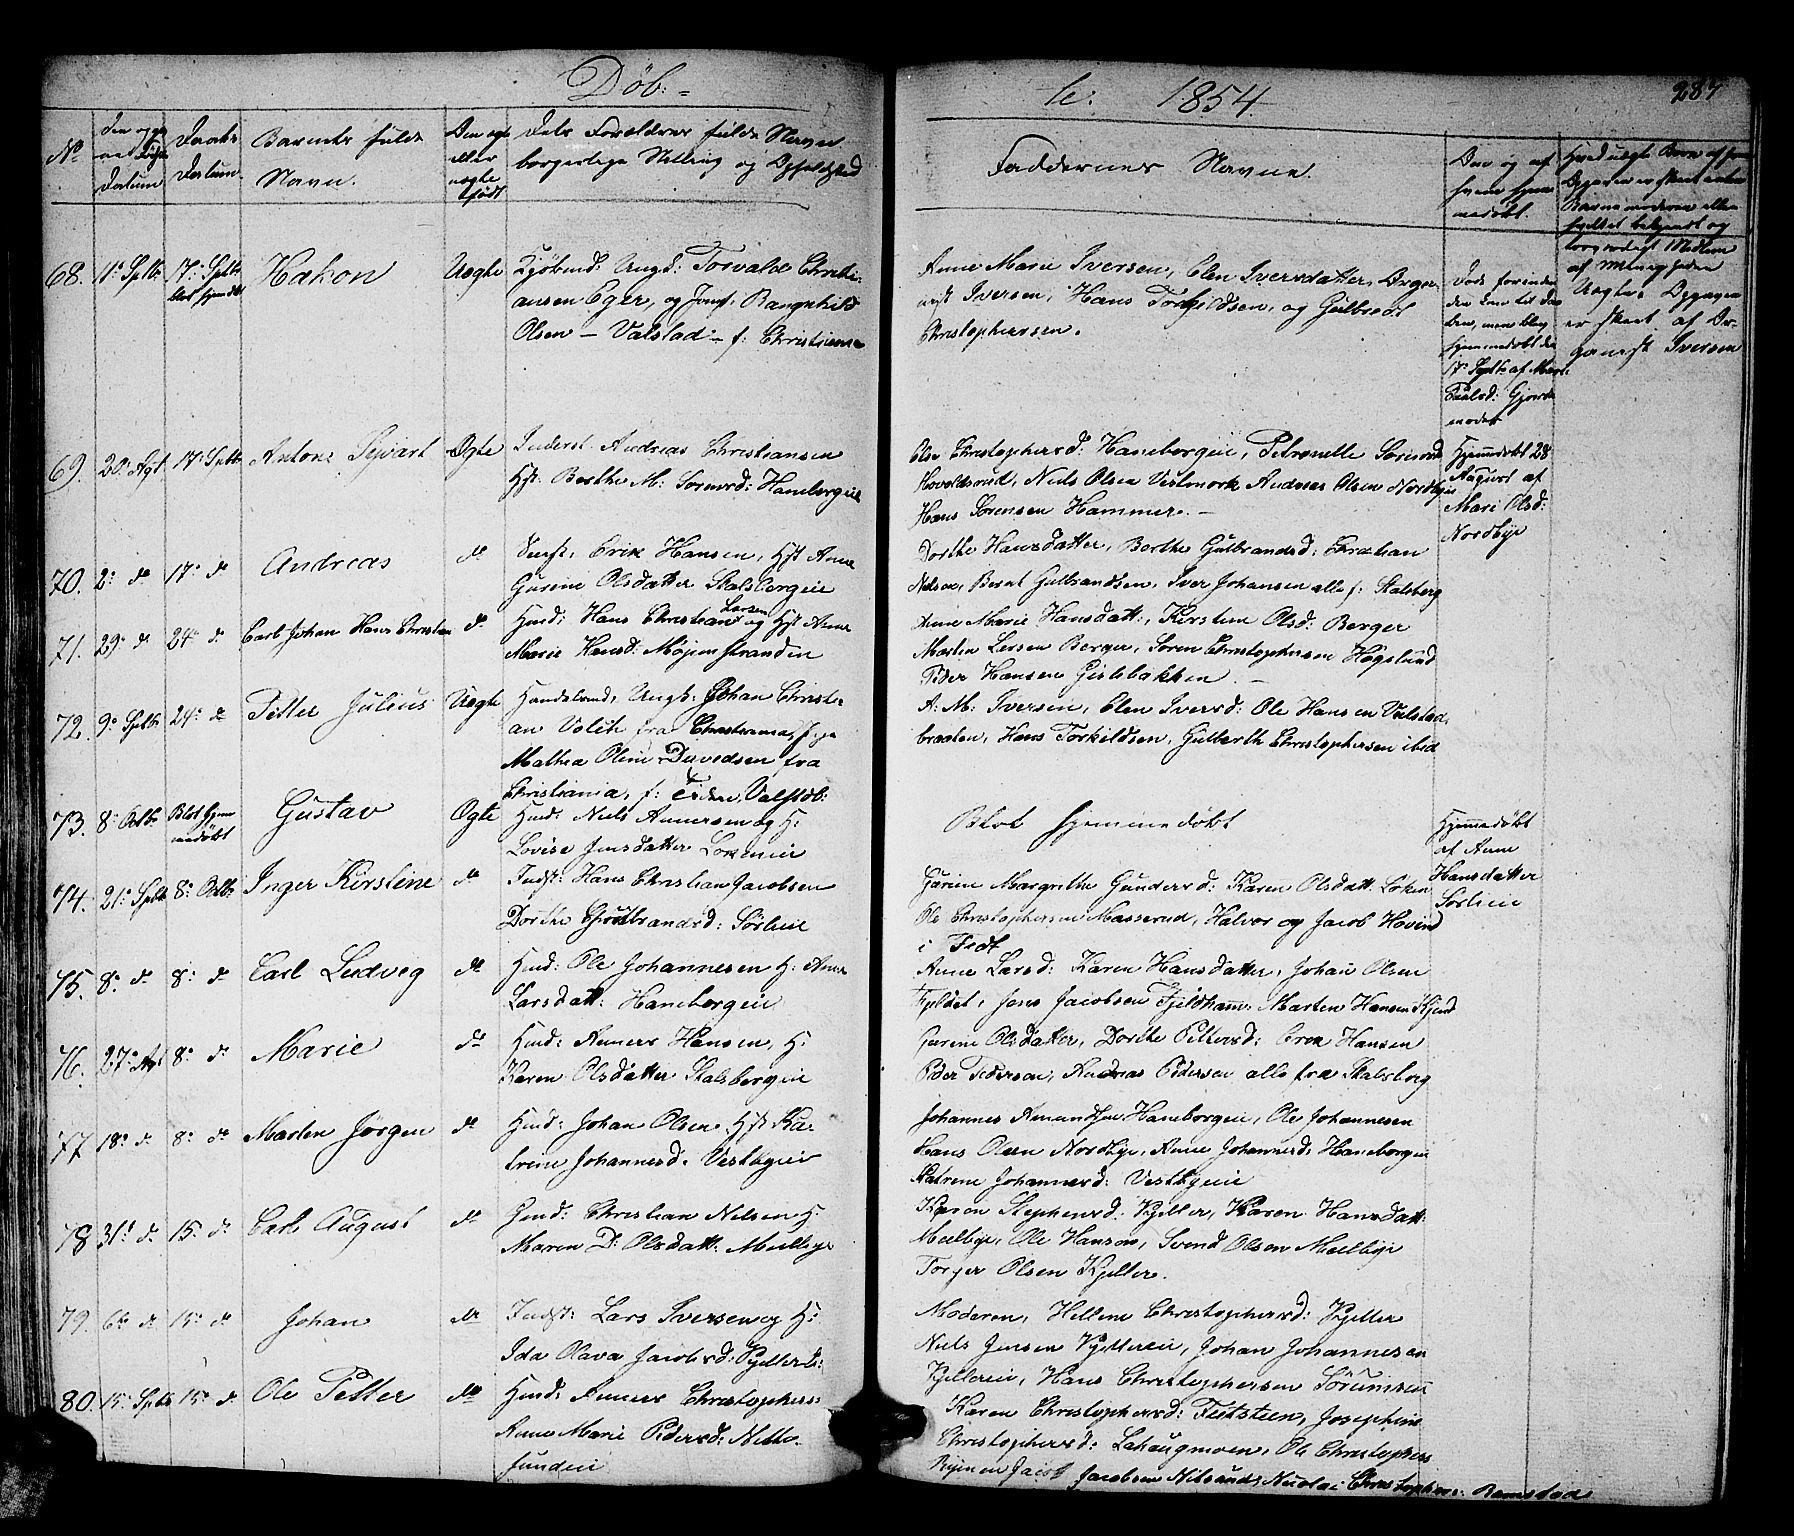 Døb:
te: 1854.
287
No
Daabs
Datum.
Barnets fulde
Navn.
Den ægte
eller
uægte
født
Dets Forældres fulde Navn
borgerlige Stilling og Opholdsted
Faddernes Navne.
Om og af
hvem hjem
medøbt.
68. 11te Sptbr 17. Sptbr Hakon Uægte
Torvald Christi-
ansen Eger, og Ragnhild
Olsen - Valstad - f: Christiania
Anne Marie Iversen, Elen Iversdatter,
Iversen, Hans Torkildsen, og Gulbrand
Christophersen.
17de Septbr af
Uægte
er skeet af
Iversen
69. 20 Agt 17 Sptbr Antone Sivart Ægte
Inderst. Andreas Christiansen
Hst. Berthe M: Sørensd: Haneborgeie
Ole Christophersd: Haneborgeie, Petronelle
Hovelsrud, Niels Olsen Vestmork Andreas Olsen Nordbye
Hans Sørensen Hammer. -
Hjemmedøbt 28
August af
Mari Olsd:
Nordbye
70. 2: do 17: do Andreas do
Inst: Erik Hansen, Hst Anne
Gurine Olsdatter Stalsbergeie
Dorthe Hansdatter, Berthe Gulbrandsd:
Nilsen, Bernt Gulbrandsen, Iver Johansen alle f: Stalsberg
71. 29: do 24 d: Carl Johan Hans Christian do
Husd: Hans Christian Larsen og Hst Anne
Marie Hansd: Mojenstranden
Anne Marie Hansdatt:, Kirsten Olsd: Berger
Martin Larsen Berger, Søren Christophersen Høgslund
Peder Hansen
72. 9: Sptbr 24: do Petter Julius Uægte
Ungk: Johan Christi-
an fra Christiania,
Mathea Oline Davedsen fra
Christiania, f:
A: M: Iversen, Elen Iversd: Ole Hansen Valstad
braaten, Hans Torkildsen, Gulbrand Christophersen ibid
73. 8: Octbr Blot Hjem
medøbt Gustav Ægte
Husd: Niels Amersen og H:
Lovise Jensdatter
Blot hjemmedøbt
Hjemmedøbt
af Anne
Hansdatter
Sørlieie
74. 21: Sptb 8: Octb: Inger Kirstine do
Indst: Hans Christian Jacobsen
Dorthe Gulbrandsd: Sørlieie
Gurine Margrethe Gundersd: Karen Olsdatt: Løken
Ole Christophersen Masserud, Halvor og Jacob Hovind
i Fedt
75. 8: do 8: do Carl Ludvig do
Husd: Ole Johannesen H: Anne
Larsdatt: Haneborgeie
Anne Larsd: Karen Hansdatter, Johan Olsen
Jens Jacobsen Fjeldhamr: Marten Hansen
76. 27: Agt 8: do Marie do
Husd: Anners Hansen, H:
Karen Olsdatter Stalsbergeie
Gurine Olsdatter, Dorthe Pettersd: Erik Hansen
Peder Pederson, Andreas Pedersen alle fra Stalsberg
77. 18: d: 8: do Martin Jørgen do
Husd: Johan Olsen, Hst Ka-
trine Johannesd. Vestbyeie
Johannes Haneborgeie, Ole Johannesen
Hans Olsen Nordbye, Anne Johannesd: Haneborgeie
Katrine Johannesd: Vestbyeie
78. 31: do 15: do Carl August do
Husd: Christian Nilsen H:
Maren D: Olsdatt: Meelbye
Karen Stephensd: Kjeller, Karen Hansdatt:
Meelbye, Ole Hansen, Svend Olsen Meelbye
Torger Olsen Kjeller.
79. 6te do 15: do Johan do
Indst: Lars Iversen og H:
Ida Olava Jacobsd: Kjellerie
Moderen, Hellene Christophersd: Kjeller
Niels Jensen Kjellereie, Johan Johannesen
Kjellereie, Hans Christophersen Sørumseie
80. 15: Sptb 15: do Ole Petter do
Husd: Anners Christophers:
Anne Marie Pedersd:
Karen Christophersd: Feitsteen, Josephine
Christophersd: Lahaugmoen, Ole Christophers
Jacob Jacobsen Nitsund, Nicolai Christophers: Ramstad